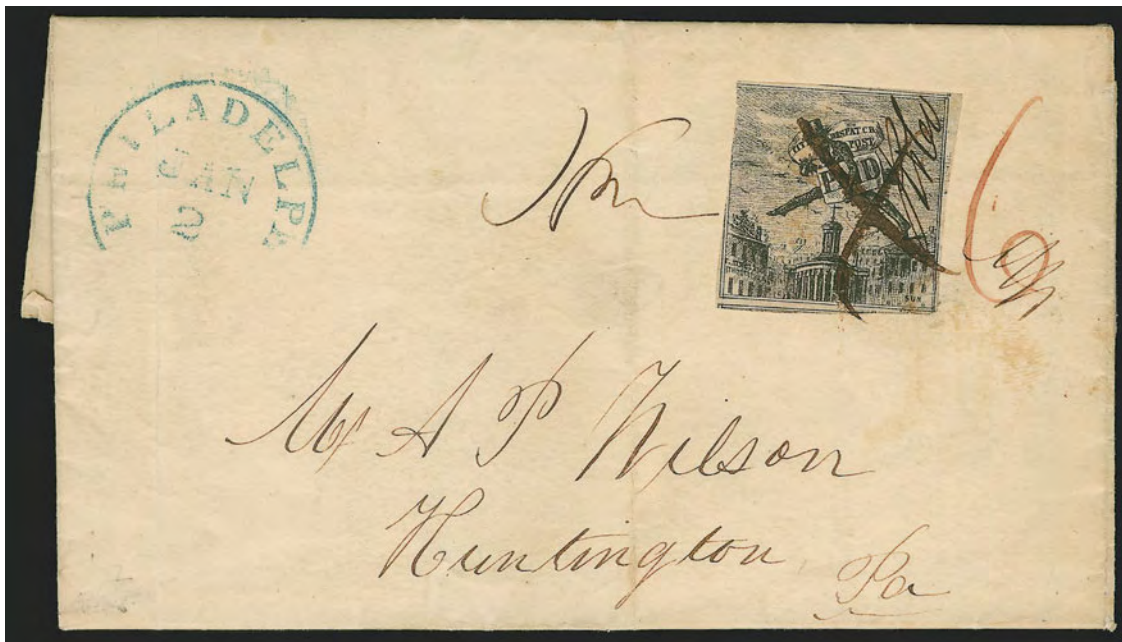 PHILADELPA
JAN
2
CITY DISPATCH
POST
PAID
6
Mr A P Wilson
Huntington
Pa